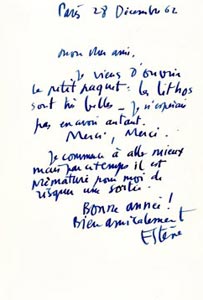 Paris 28 Décembre 62
mon cher ami.
Je viens d'ouvrir
le petit paquet : les lithos
sont très belles _ Je n'espérais
pas en avoir autant.
Merci, Merci.
Je commence à aller mieux
mais par ce temps il est
prématuré pour moi de
risquer une sortie.
Bonne année !
Bien amicalement
Estève